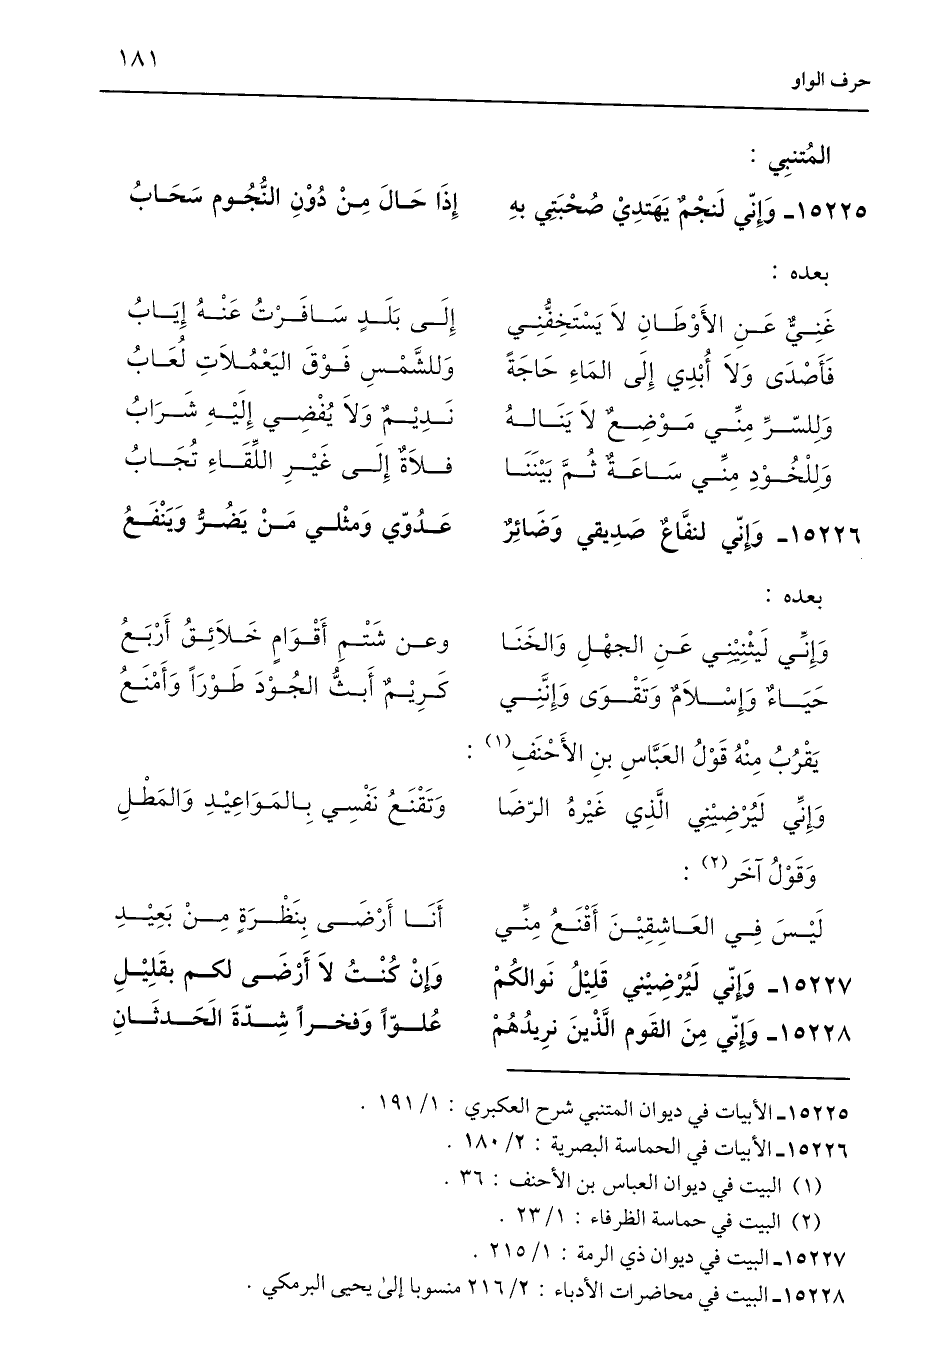 ١٨١
حرف الواو
المُتنبِي :
١٥٢٢٥ـ وَإِنّي لَنجْمٌ يَهَتدِيْ صُحْبَتِي بهِ إِذَا حَـالَ مِـنْ دُوْنِ النُّجُـومِ سَحَابُ
بعده :
غَنِـيٌّ عَـنِ الأَوْطَـانِ لاَ يَسْتَخِفُّنـِي إِلَـى بَلَـدٍ سَـافَـرْتُ عَنْـهُ إِيَـابُ
فَأَصْدَى وَلاَ أُبْدِي إِلَى المَاءِ حَاجَةً وَللشَّمْـسِ فَـوْقَ اليَعْمُـلاَتِ لُعَـابُ
وَللسّـرِّ مِنِّـي مَـوْضِـعٌ لاَ يَنَـالـهُ نَـدِيْـمٌ وَلاَ يُفْضِـي إِلَيْـهِ شَـرَابُ
وَلِلْخُـوْدِ مِنِّـي سَـاعَـةٌ ثُـمَّ بَيْنَنَـا فـلاَةٌ إِلَـى غَيْـرِ اللِّقَـاءِ تُجَـابُ
١٥٢٢٦ـ وَإِنّي لنفَّاعٌ صَدِيقي وَضَائِرٌ عَـدُوّي وَمثْلـي مَـنْ يَضُـرُّ وَيَنْفَـعُ
بعده :
وَإِنِّـي لَيثْنِيْنِـي عَـنِ الجهْـلِ وَالخَنَـا وعـن شَتْـمِ أَقْـوَامٍ خَـلاَئِـقُ أَرْبَـعُ
حَيَـاءٌ وَإِسْـلاَمٌ وَتَقْـوَى وَإِنَّنـِي كَـرِيْـمٌ أَبـثُّ الجُـوْدَ طَـوْرَاً وَأَمْنَـعُ
يَقْرُبُ مِنْهُ قَوْلُ العَبَّاسِ بنِ الأَحْنَفِ(١) :
وَإِنِّي لَيُرْضِيْنِي الَّذِي غَيْرُهُ الرّضَا وَتَقْنَعُ نَفْسِي بِـالمَـوَاعِيْـدِ وَالمَطْـلِ
وَقَوْلُ آخَر(٢) :
لَيْـسَ فِـي العَـاشِقِيْـنَ أَقْنَـعُ مِنِّـي أَنَـا أَرْضَـى بِنَظْـرَةٍ مِـنْ بَعِيْـدِ
١٥٢٢٧ـ وَإِنّي لَيُرْضِيْني قَلِيْلُ نَوالكُمْ وَإِنْ كُنْـتُ لاَ أَرْضَـى لكـم بقَلِيْـلِ
١٥٢٢٨ـ وَإِنّي مِنَ القَوم الَّذْينَ نرِيدُهُمْ عُلـوّاً وَفخـراً شِـدّةَ الحَـدثَـانِ
١٥٢٢٥ـ الأبيات في ديوان المتنبي شرح العكبري : ١/ ١٩١ .
١٥٢٢٦ـ الأبيات في الحماسة البصرية : ٢/ ١٨٠ .
(١) البيت في ديوان العباس بن الأحنف : ٣٦ .
(٢) البيت في حماسة الظرفاء : ١/ ٢٣ .
١٥٢٢٧ـ البيت في ديوان ذي الرمة : ١/ ٢١٥ .
١٥٢٢٨ـ البيت في محاضرات الأدباء : ٢/ ٢١٦ منسوبا إلىٰ يحيى البرمكي .